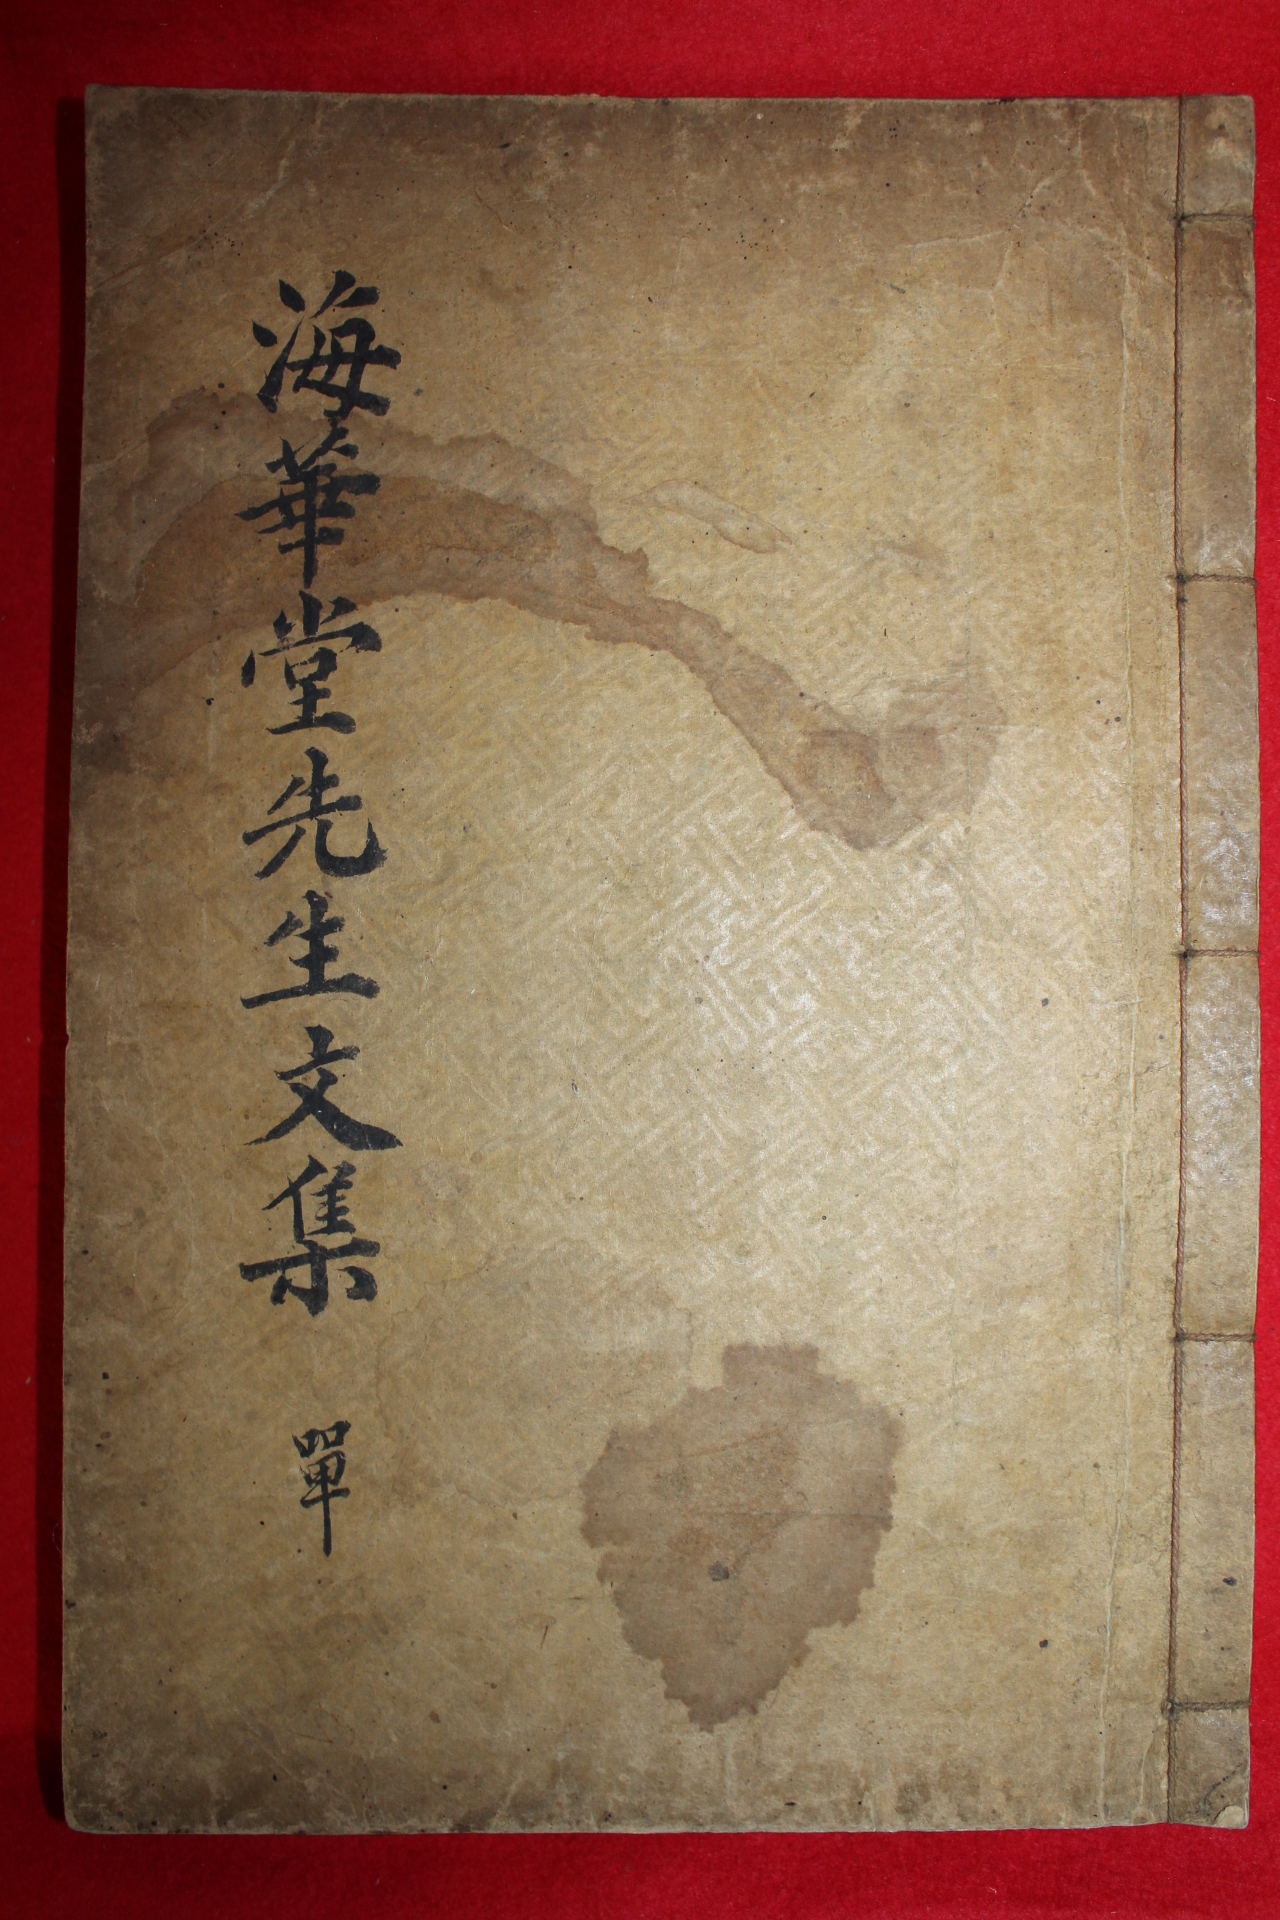 海華堂先生文集 單